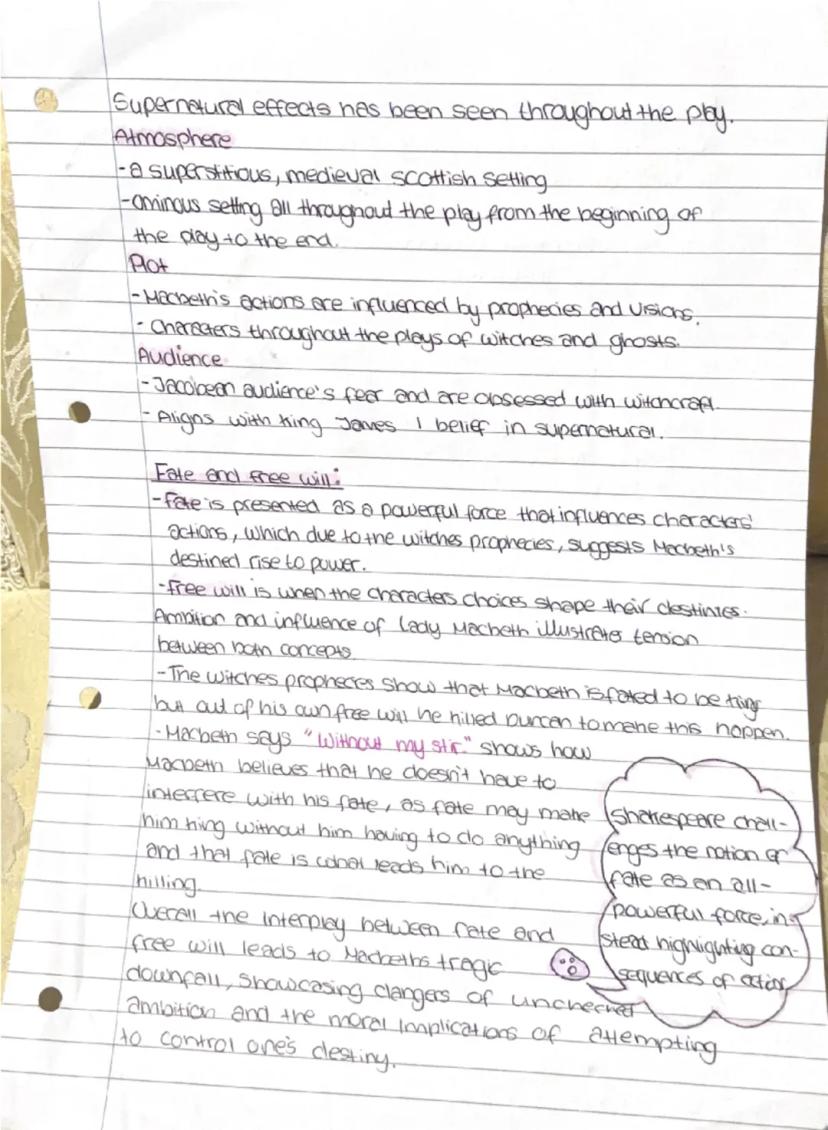 Supernatural effects has been seen throughout the play.
Atmosphere
- a superstitious, medieval scottish setting
- ominous setting all throughout the play from the beginning of
the play to the end.
Plot
- Macbeth's actions are influenced by prophecies and visions.
- Characters throughout the plays of witches and ghosts.
Audience
- Jacobean audience's fear and are obsessed with witchcraft.
- Aligns with King James 1 belief in supernatural.
Fate and free will:
- Fate is presented as a powerful force that influences characters'
actions, which due to the witches prophecies, suggests Macbeth's
destined rise to power.
- Free will is when the characters choices shape their destinies.
Ambition and influence of lady Macbeth illustrates tension
between both concepts
- The witches prophecies show that Macbeth is fated to be king
but out of his own free will he killed Duncan to make this happen.
- Macbeth says "Without my stir." shows how
Macbeth believes that he doesn't have to
interfere with his fate, as fate may make
him king without him having to do anything
and that fate is what leads him to the
killing.
Overall the interplay between fate and
free will leads to Macbeths tragic
downfall, showcasing dangers of unchecked
ambition and the moral implications of attempting
to control one's destiny.
Shakespeare chall-
enges the notion of
fate as an all-
powerful force, in-
stead highlighting con-
sequences of action